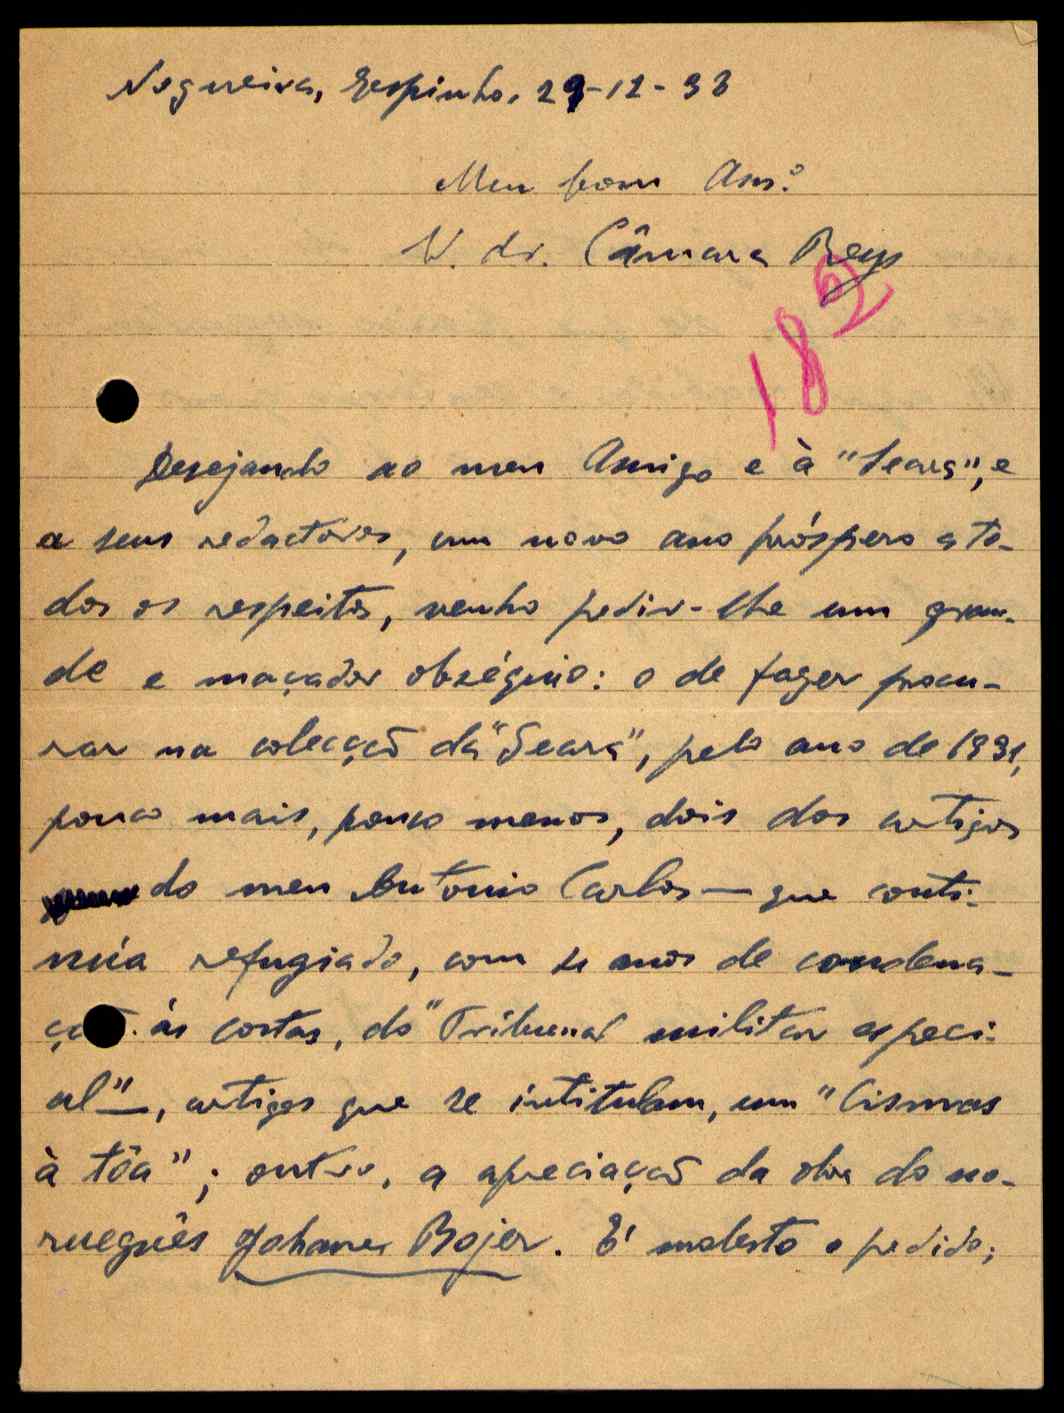 Nogueira, Espinho, 29-12-33
Meu bom Am.º
Dr. Câmara Reys
182
Desejando ao meu Amigo e à "Seara", e
a seus redactores, um novo ano próspero a to-
dos os respeitos, venho pedir-lhe um gran-
de e maçador obséquio: o de fazer procu-
rar na colecção da "Seara", pelo ano de 1931,
pouco mais, pouco menos, dois dos artigos
do meu António Carlos — que conti-
núa refugiado, com anos de condena-
ção às costas, do "Tribunal militar especi-
al" —, artigos que se intitulam, um "Cismas
à tôa"; outro, a apreciação da obra do no-
rueguês Johanes Bojer. É molesto o pedido;